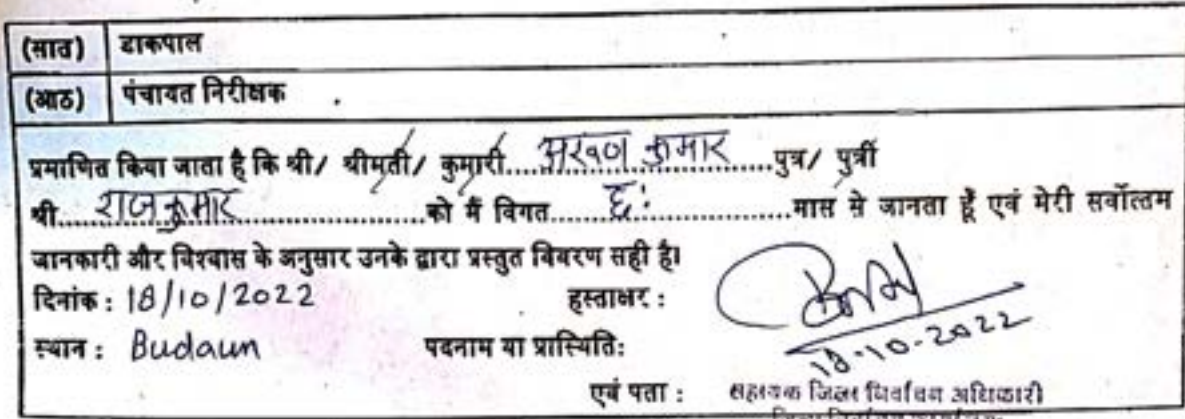 (सात) डाकपाल
(आठ) पंचायत निरीक्षक
प्रमाणित किया जाता है कि श्री/ श्रीमती/ कुमारी.....................पुत्र/ पुत्री
श्री.....राजकुमार.....................को मैं विगत........छः.....................मास से जानता हूँ एवं मेरी सर्वोत्तम
जानकारी और विश्वास के अनुसार उनके द्वारा प्रस्तुत विवरण सही है।
दिनांक : 18/10/2022 हस्ताक्षर :
18-10-2022
स्थान : Budaun पदनाम या प्रास्थिति:
एवं पता : सहायक जिला निर्वाचन अधिकारी